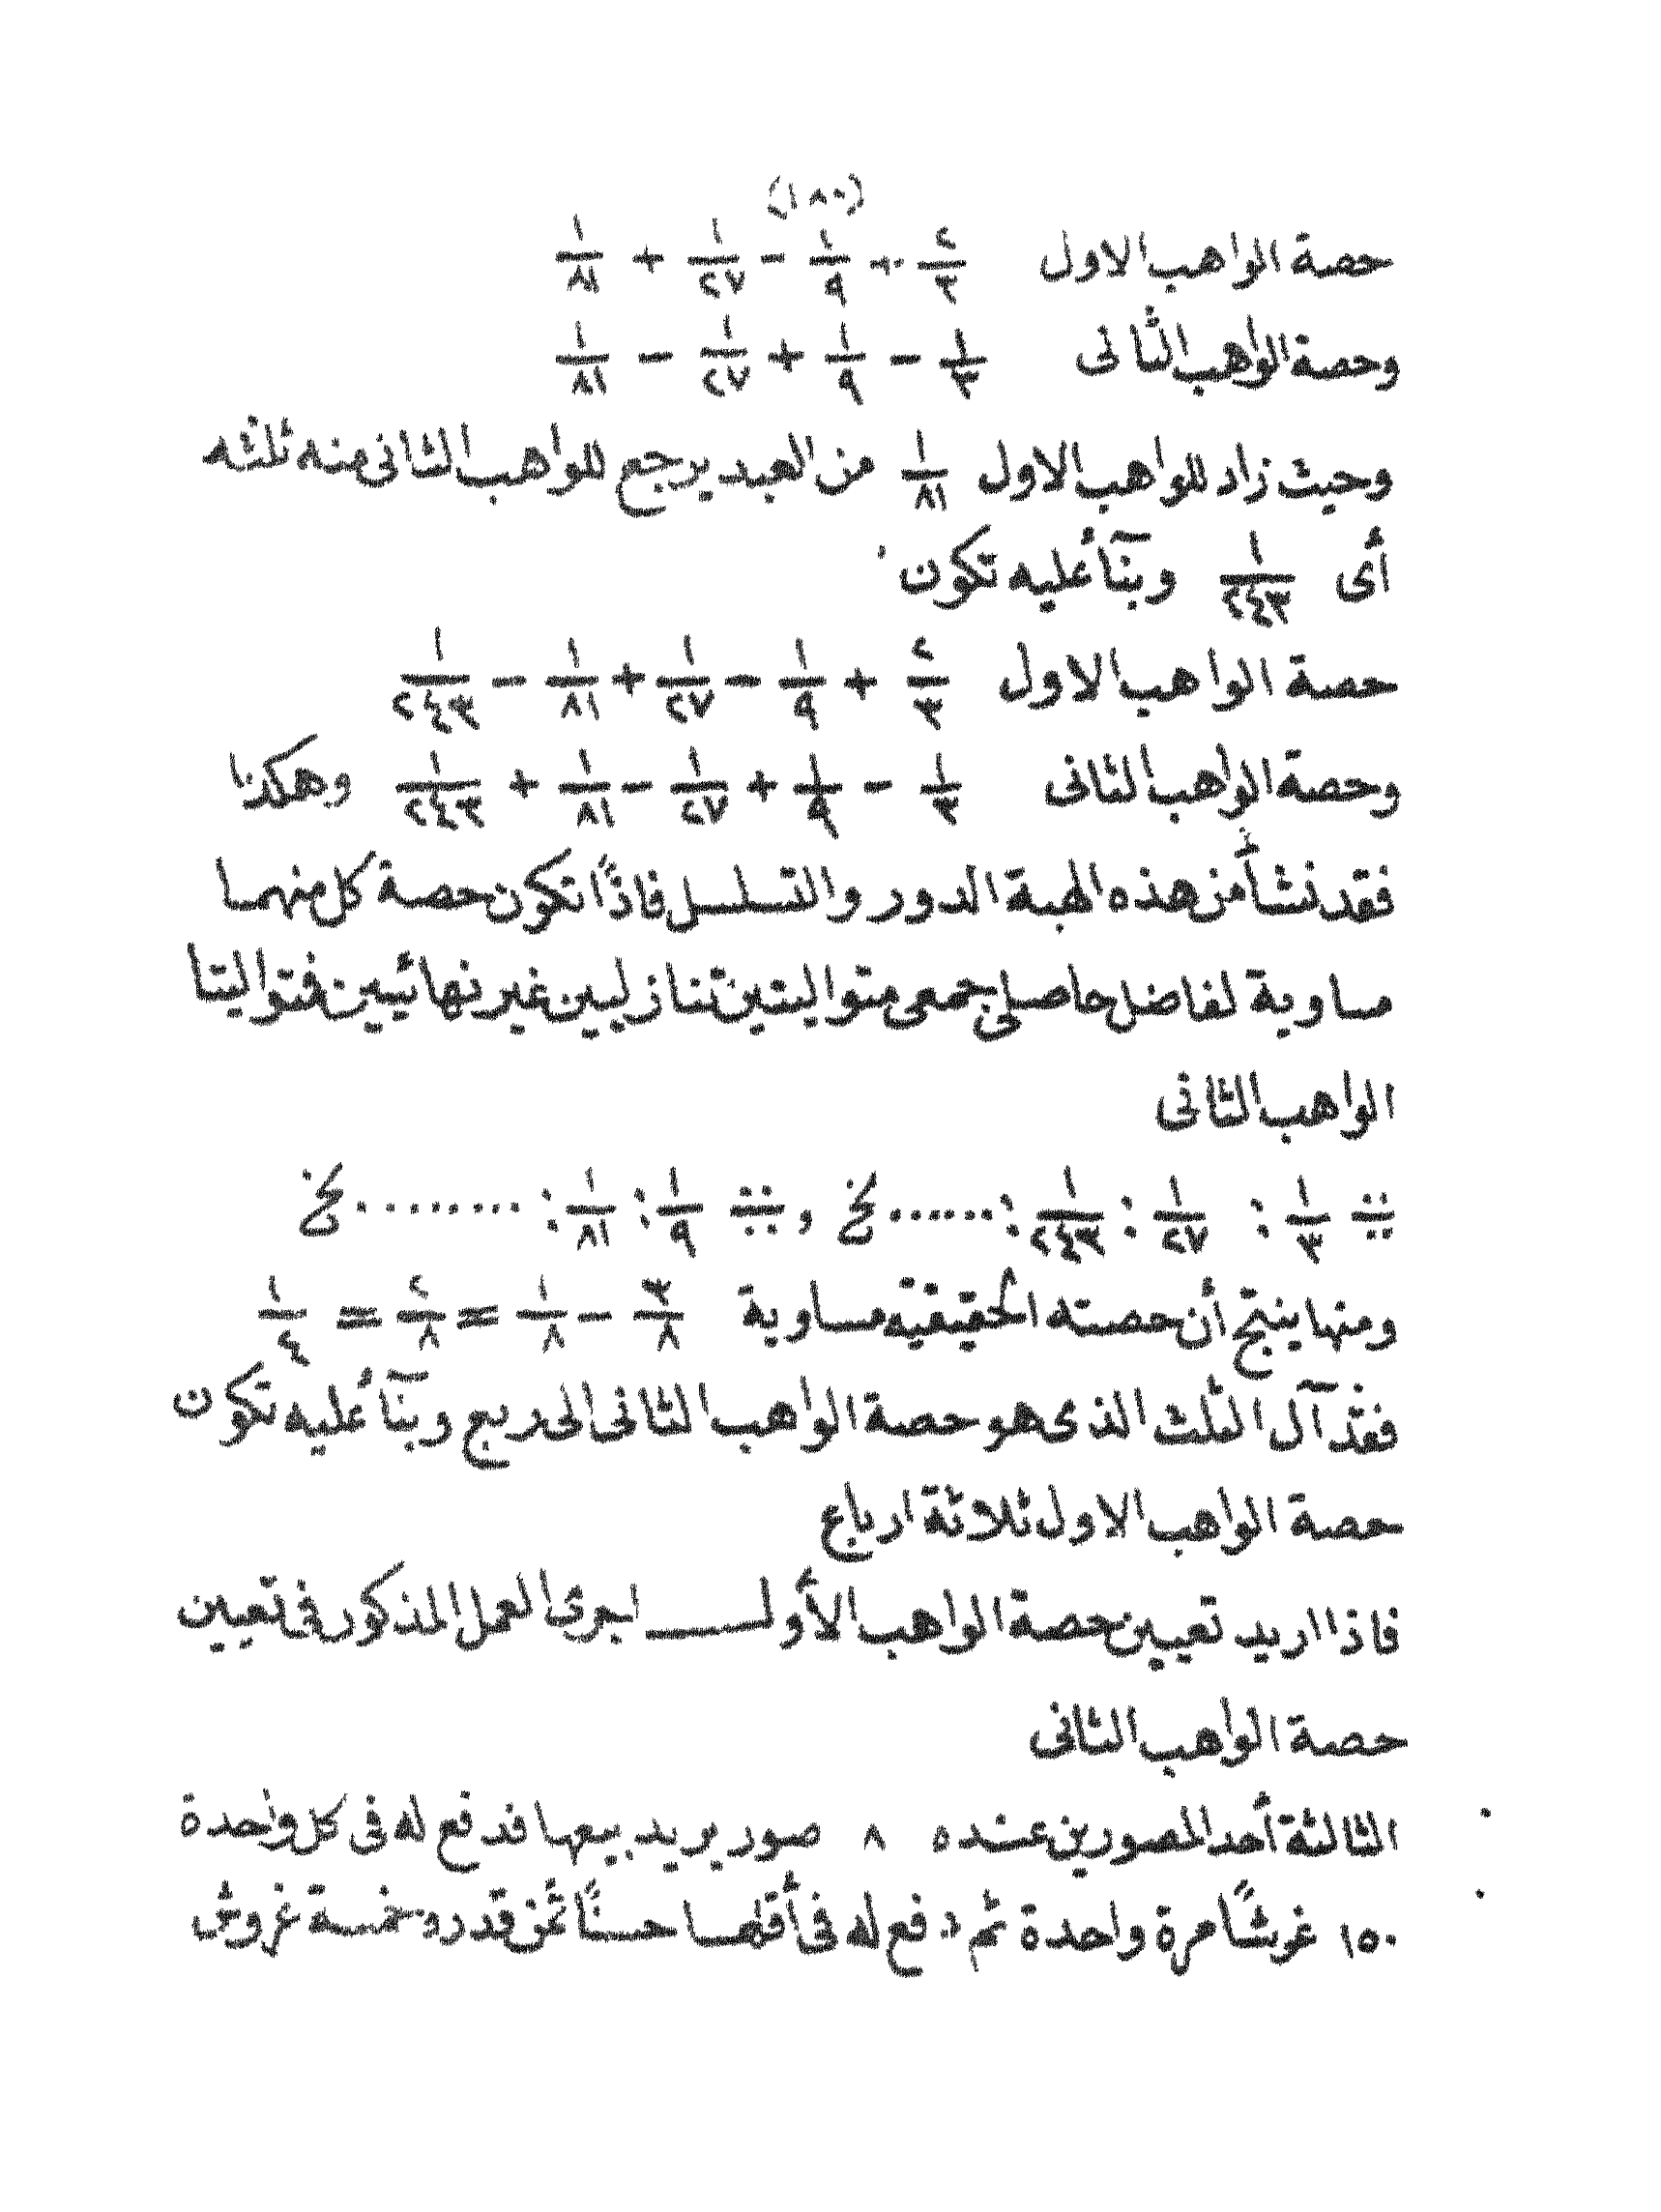 (١٨٠)
حصة الواهب الاول ٢/٣ + ١/٩ - ١/٢٧ + ١/٨١
وحصة الواهب الثانى ١/٣ - ١/٩ + ١/٢٧ - ١/٨١
وحيث زاد للواهب الاول ١/٨١ من العبد يرجع للواهب الثانى منه ثلثه
أى ١/٢٤٣ وبنآأعليه تكون
حصة الواهب الاول ٢/٣ + ١/٩ - ١/٢٧ + ١/٨١ - ١/٢٤٣
وحصة الواهب الثانى ١/٣ - ١/٩ + ١/٢٧ - ١/٨١ + ١/٢٤٣ وهكذا
فقد نشأ من هذه الهبة الدور والتسلسل فاذًا تكون حصة كل منهما
مساوية لفاضل حاصلى جمعى متواليتين تنازليين غير نهائيين فتواليتا
الواهب الثانى
∺ ١/٣ : ١/٢٧ : ١/٢٤٣ : ...... الخ , ∺ ١/٩ : ١/٨١ : ........ الخ
ومنها ينتج أن حصته الحقيقيه مساوية ٣/٨ - ١/٨ = ٢/٨ = ١/٤
فقد آل الثلث الذى هو حصة الواهب الثانى الى ربع وبنآأعليه تكون
حصة الواهب الاول ثلاثة ارباع
فاذا اريد تعيين حصة الواهب الأول اجرى العمل المذكور فى تعيين
حصة الواهب الثانى
الثالثة أحد المصورين عنده ٨ صور يريد بيعها قد فع له فى كل واحدة
١٥٠ غرشًا مرة واحدة ثم دفع له فى أقلها حسنًا ثمن قدره خمسة غروش